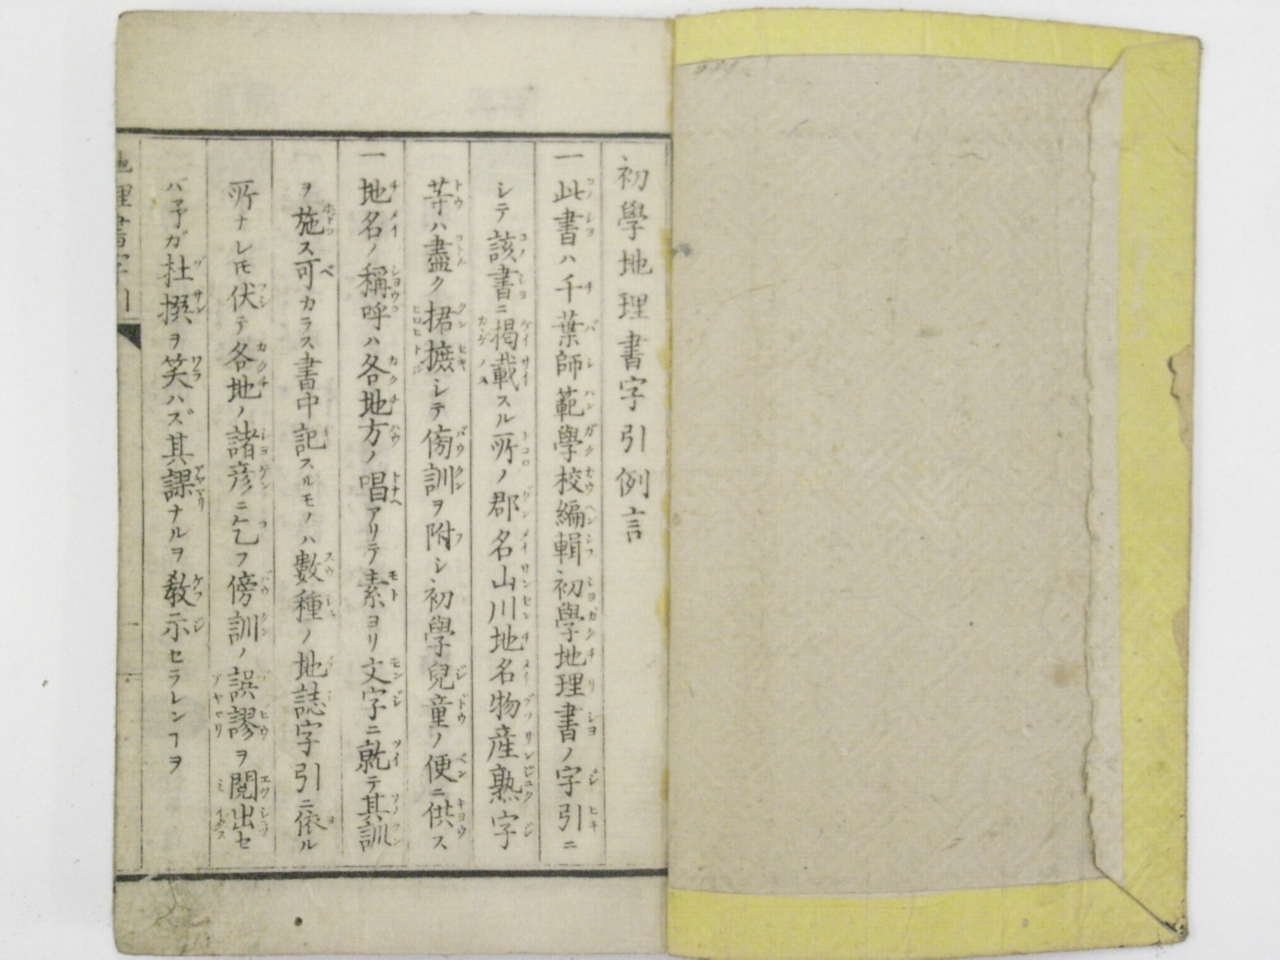 初學地理書字引例言
一此書ハ千葉師範學校編輯初學地理書ノ字引ニ
シテ該書ニ掲載スル所ノ郡名山川地名物産熟字
等ハ盡ク捃摭シテ傍訓ヲ附シ初學兒童ノ便ニ供ス
一地名ノ稱呼ハ各地方ノ唱アリテ素ヨリ文字ニ就テ其訓
ヲ施ス可カラス書中記スルモノハ數種ノ地誌字引ニ依ル
所ナレ𪜈伏テ各地ノ諸彦ニ乞フ傍訓ノ誤謬ヲ閲出セ
バ予ガ杜撰ヲ笑ハズ其課ナルヲ教示セラレンヿヲ
地理書字引